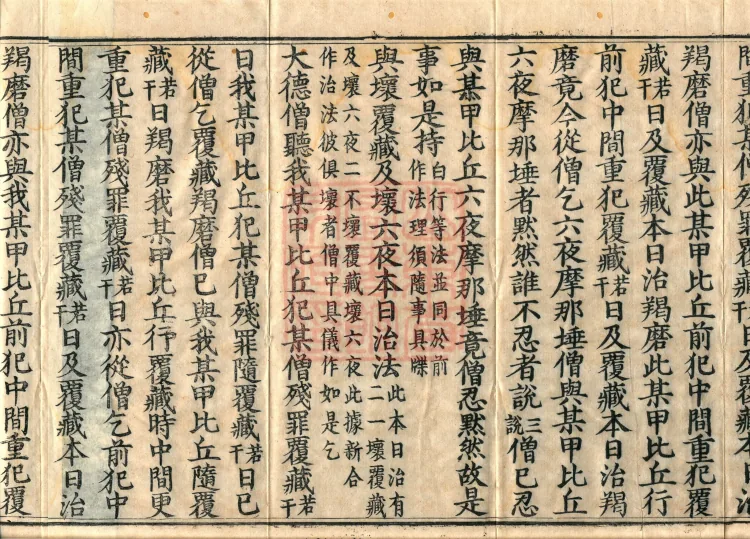 間重犯某僧殘罪覆藏若干日及覆藏本日治
羯磨僧亦與此某甲比丘前犯中間重犯覆
藏若干日及覆藏本日治羯磨此某甲比丘行
前犯中間重犯覆藏若干日及覆藏本日治羯
磨竟今從僧乞六夜摩那埵僧與某甲比丘
六夜摩那埵者默然誰不忍者說三說僧已忍
與某甲比丘六夜摩那埵竟僧忍默然故是
事如是持白行等法並同於前作法理須隨事具牒
與壞覆藏及壞六夜本日治法此本日治有二一壞覆藏
及壞六夜二不壞覆藏壞六夜此據新合
作治法彼俱壞者僧中具儀作如是乞
大德僧聽我某甲比丘犯某僧殘罪覆藏若干
日我某甲比丘犯某僧殘罪隨覆藏若干日已
從僧乞覆藏羯磨僧已與我某甲比丘隨覆
藏若干日羯磨我某甲比丘行覆藏時中間更
重犯某僧殘罪覆藏若干日亦從僧乞前犯中
間重犯某僧殘罪覆藏若干日及覆藏本日治
羯磨僧亦與我某甲比丘前犯中間重犯覆